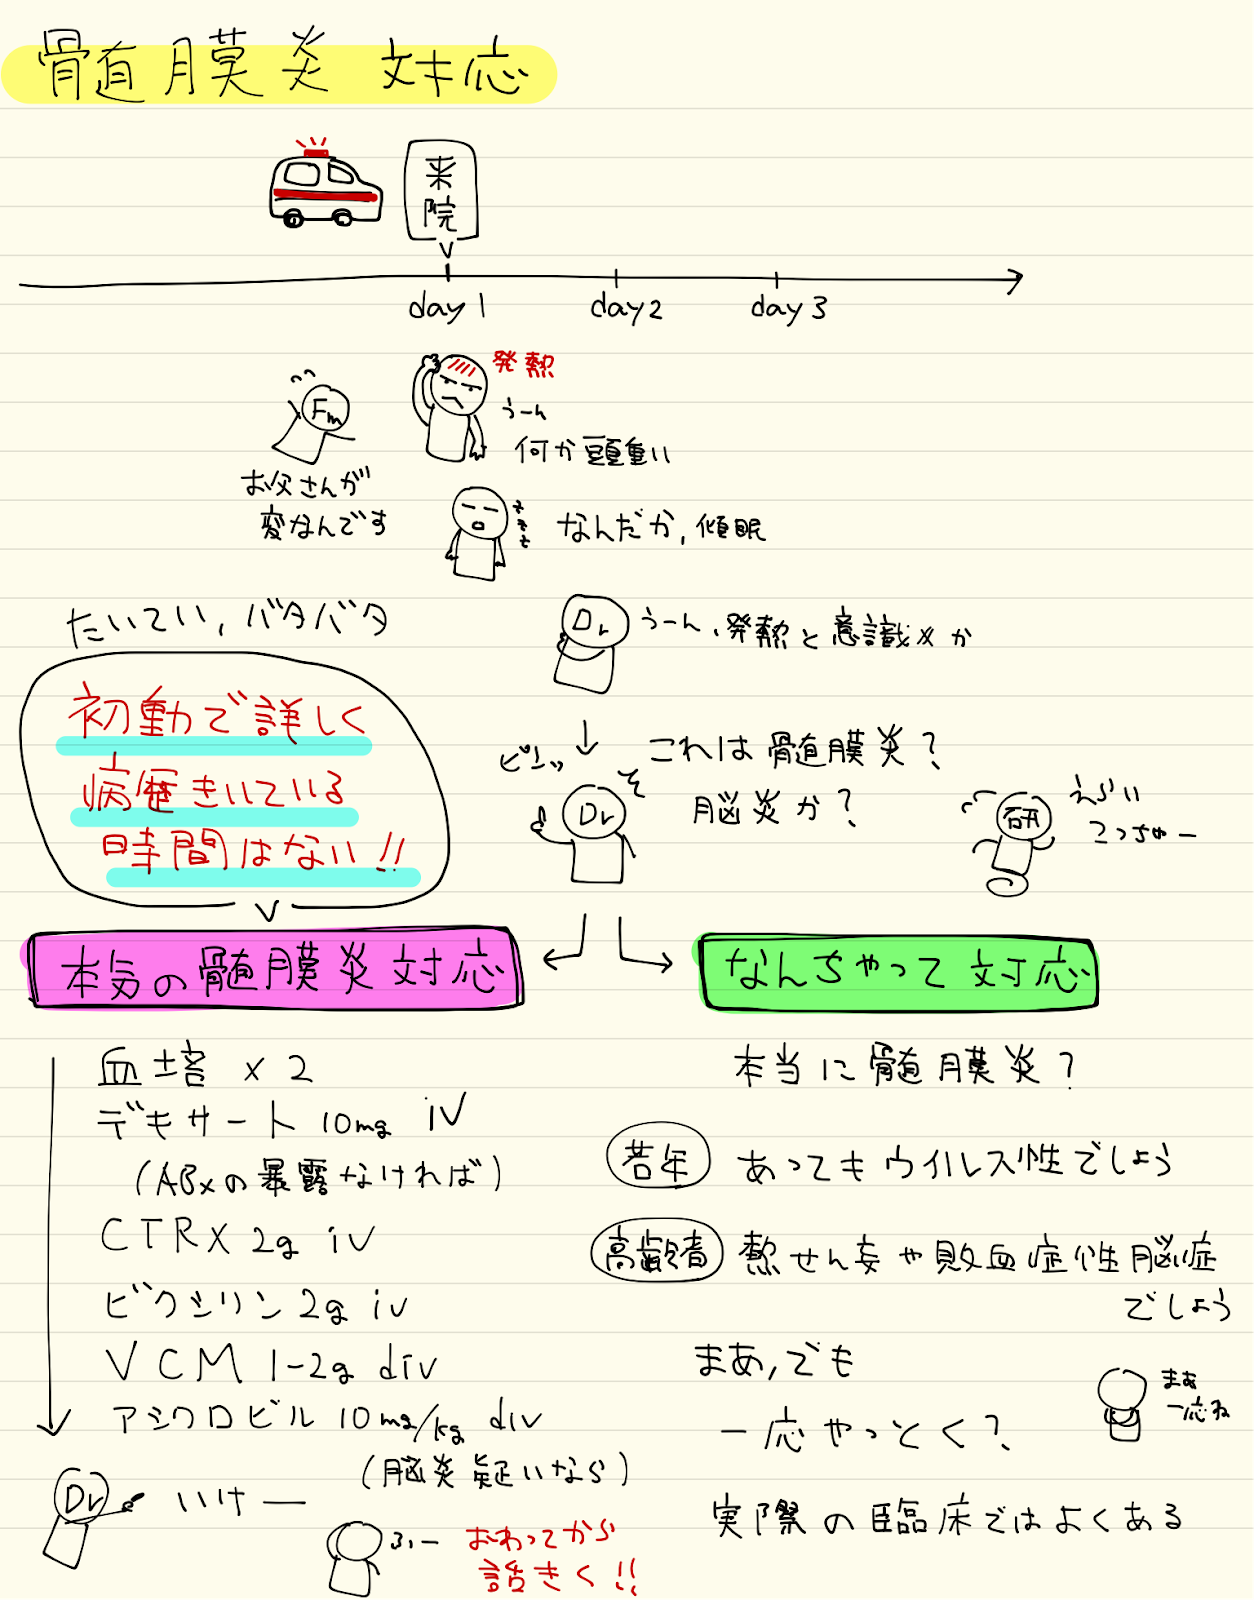 骨髄膜炎 対応
来院
day 1
day 2
day 3
発熱
うーん
何か頭重い
Fm
お父さんが
変なんです
なんだか, 傾眠
たいてい, バタバタ
Dr
うーん、発熱と意識×か
初動で詳しく
病歴きいている
時間はない!!
ピンッ
これは髄膜炎?
脳炎か?
Dr
研
えらい
こっちゃー
本気の髄膜炎対応
なんちゃって対応
血培 x 2
デキサート 10mg iv
(ABxの暴露なければ)
CTRX 2g iv
ビクシリン 2g iv
VCM 1-2g div
アシクロビル 10mg/kg div
(脳炎疑いなら)
Dr
いけー
ふー
おわってから
話きく!!
本当に髄膜炎?
若年 あってもウイルス性でしょう
高齢者 熱せん妄や敗血症性脳症
でしょう
まあ,でも
一応やっとく?
まあ
一応ね
実際の臨床ではよくある